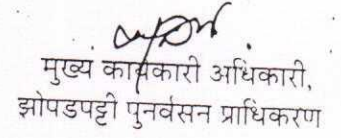 मुख्य कार्यकारी अधिकारी,
झोपडपट्टी पुनर्वसन प्राधिकरण